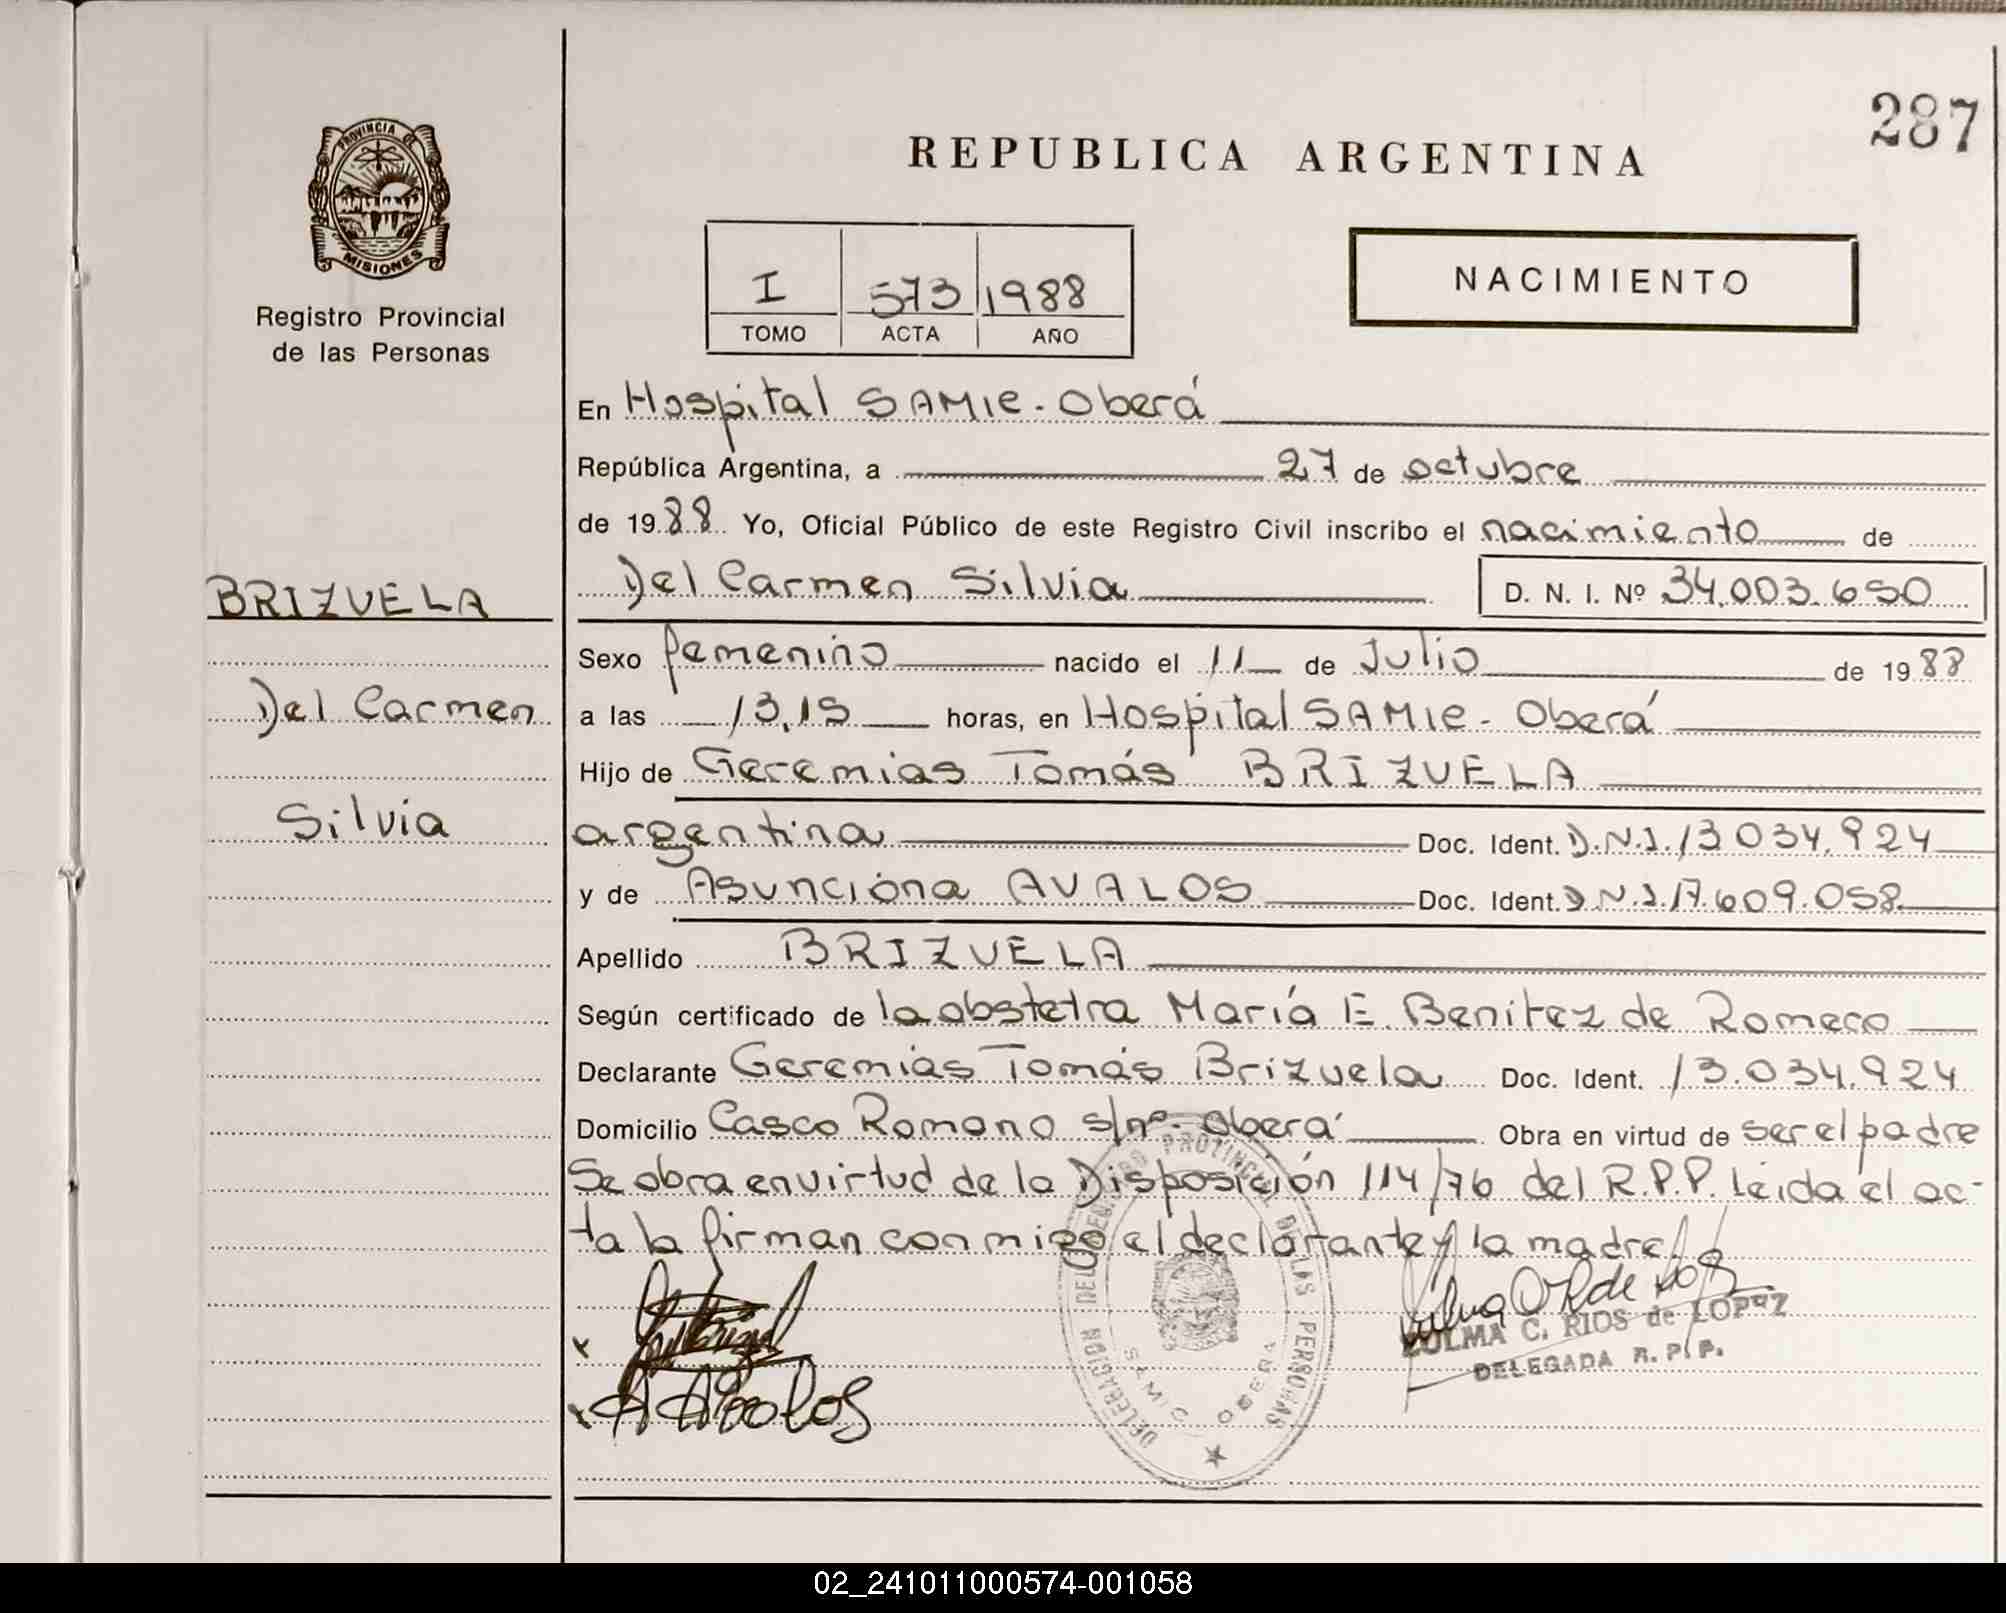 287
PROVINCIA DE
MISIONES
Registro Provincial
de las Personas
REPUBLICA ARGENTINA
I 573 1988
TOMO ACTA AÑO
NACIMIENTO
En Hospital SAMIC - Oberá
República Argentina, a 27 de octubre
de 1988 Yo, Oficial Público de este Registro Civil inscribo el nacimiento de
Del Carmen Silvia D. N. I. Nº 34.003.650
BRIZUELA
Del Carmen
Silvia
Sexo femenino nacido el 11 de Julio de 1988
a las 13,15 horas, en Hospital SAMIC - Oberá
Hijo de Geremias Tomás BRIZUELA
argentina Doc. Ident. D.N.I. 13 034.924
y de Asunciona AVALOS Doc. Ident. D.N.I. 17.609.058
Apellido BRIZUELA
Según certificado de la obstetra María E. Benitez de Romero
Declarante Geremias Tomás Brizuela Doc. Ident. 13.034.924
Domicilio Casco Romano s/nº - Oberá Obra en virtud de ser el padre
Se obra en virtud de la Disposición 114/76 del R.P.P. Leida el ac-
ta la firman conmigo el declarante y la madre
ZULMA C. RIOS de LOPEZ
DELEGADA R. P. P.
A Avalos
DELEGACION DEL REGISTRO PROVINCIAL DE LAS PERSONAS
SAMIC OBERA
02_241011000574-001058